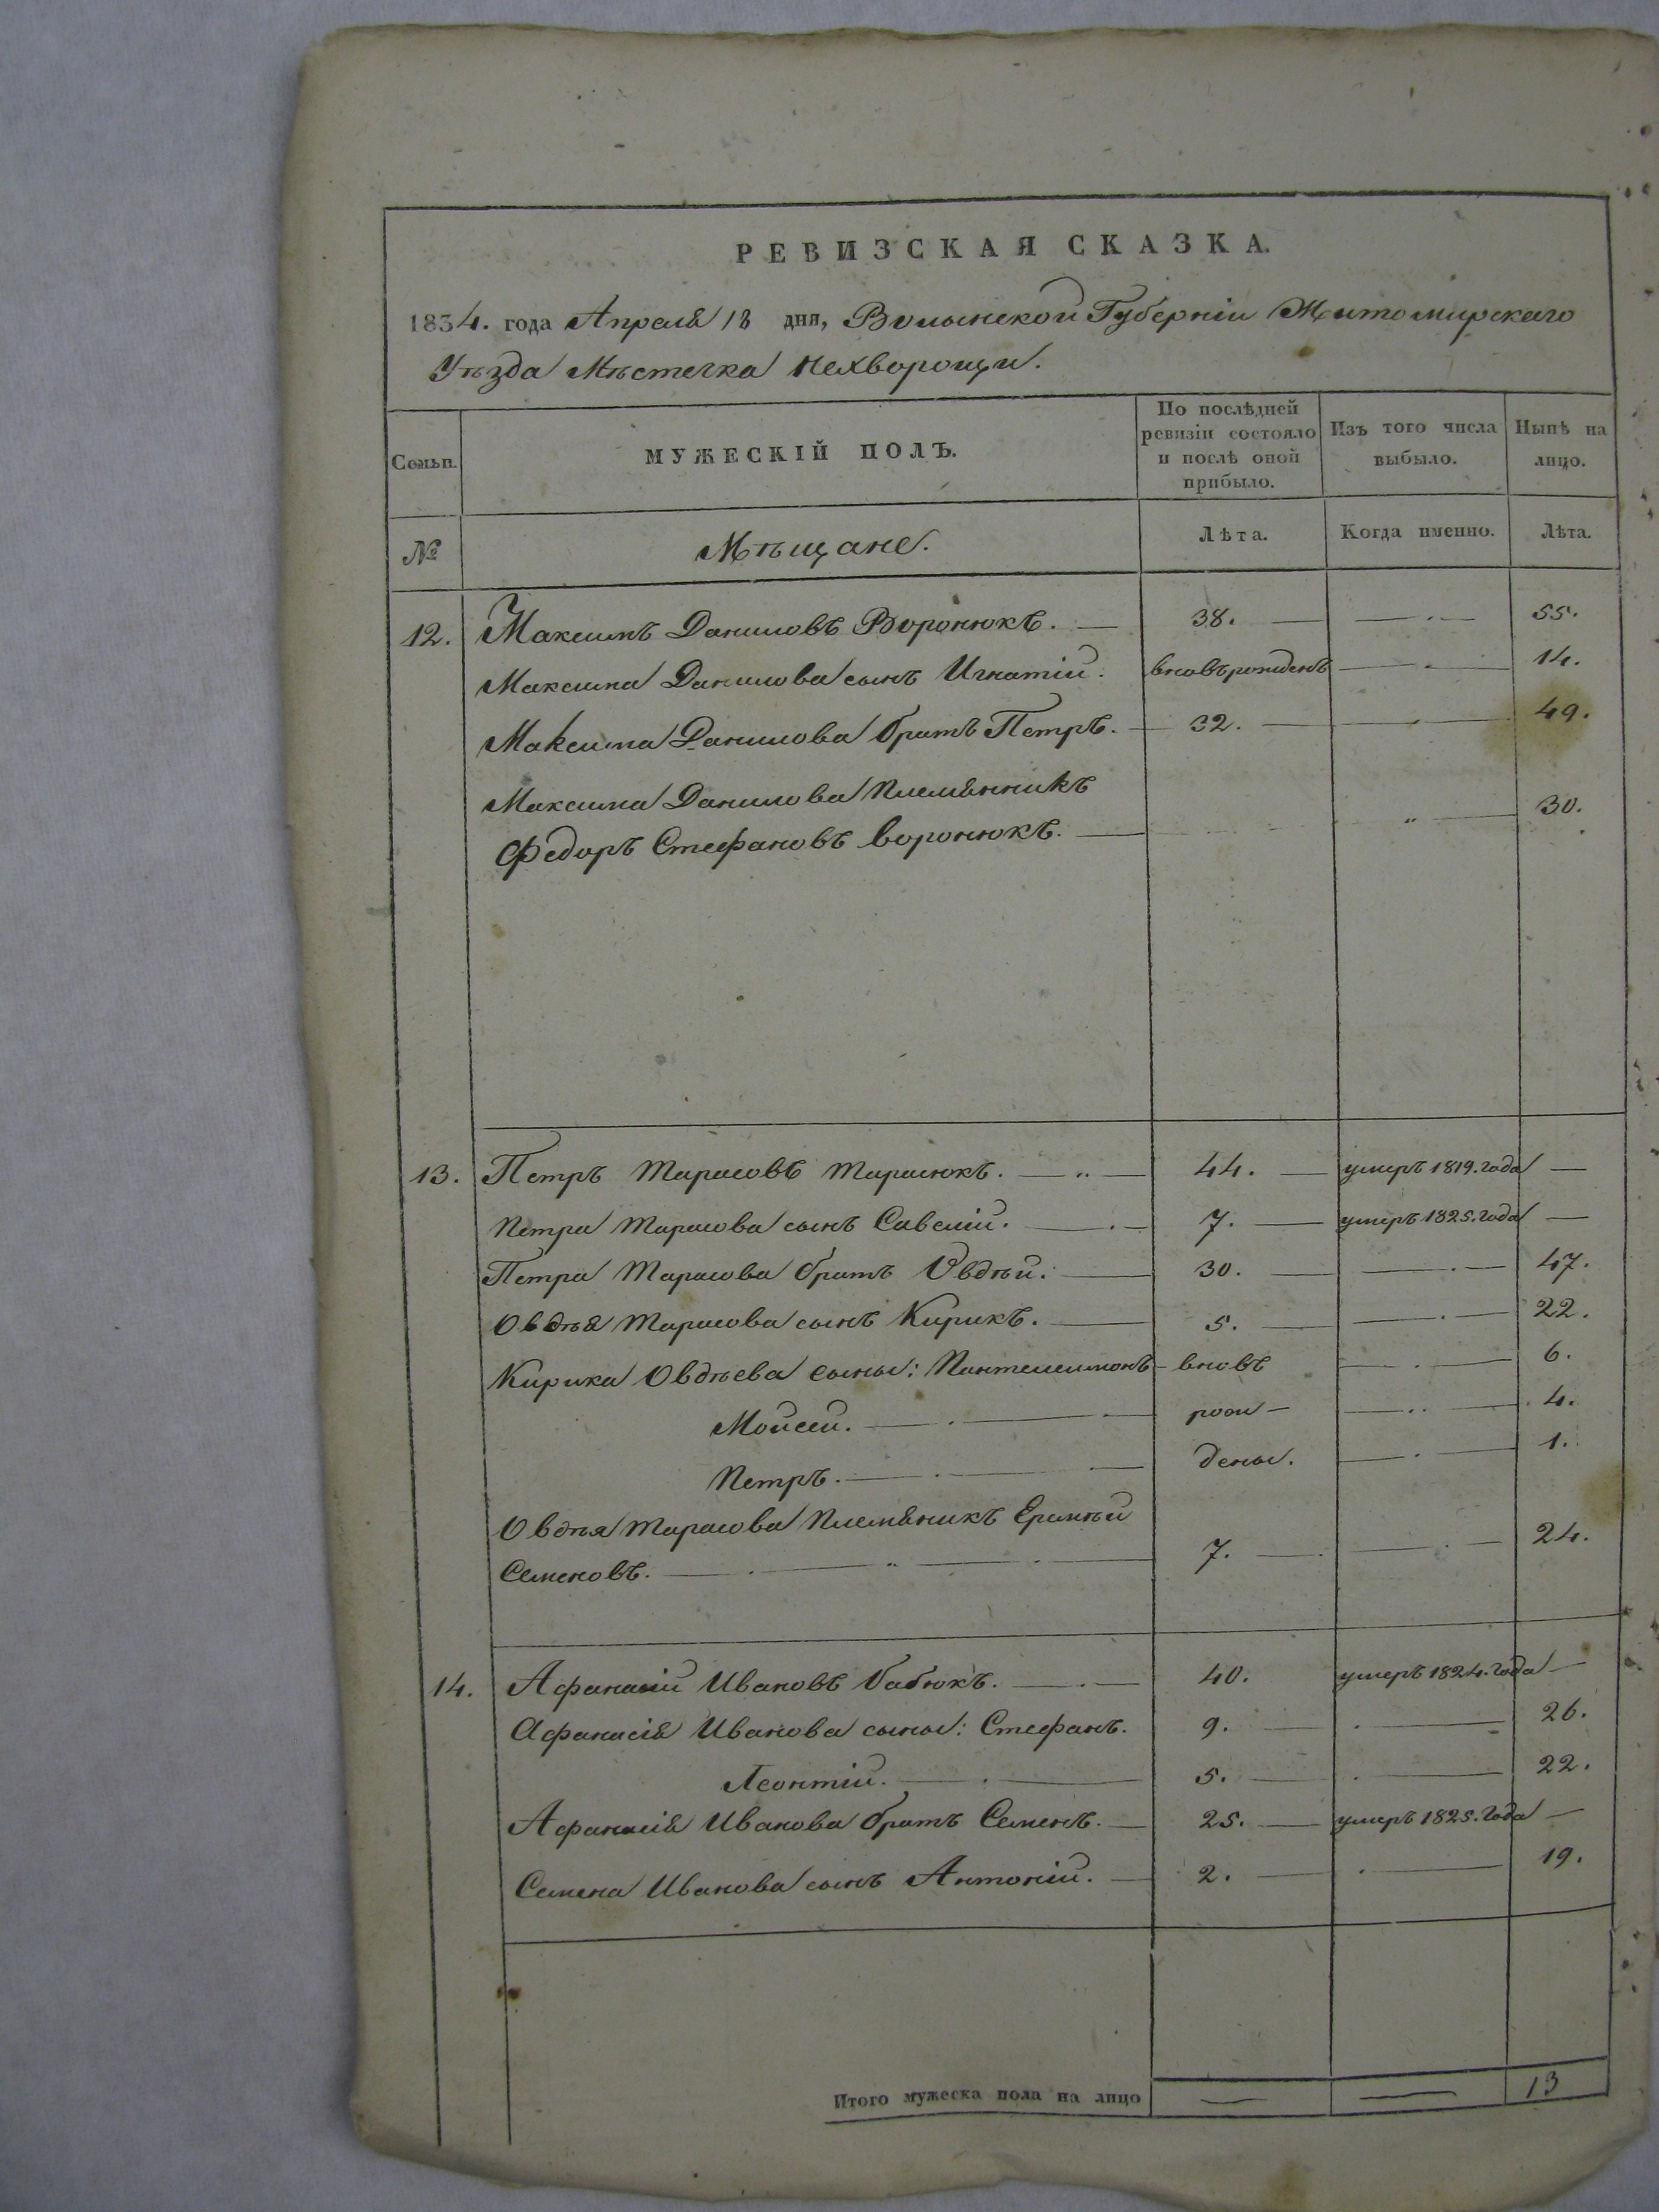 РЕВИЗСКАЯ СКАЗКА.
1834. года Апреля 18 дня, Волынской Губерніи Житомирскаго
Уѣзда Мѣстечка Нехворощи.
Семьи. МУЖЕСКІЙ ПОЛЪ. По послѣдней ревизіи состояло и послѣ оной прибыло. Изъ того числа выбыло. Нынѣ на лицо.
№ Мѣщане. Лѣта. Когда именно. Лѣта.
12. Максимъ Даниловъ Воронюкъ. — 38. — — 55.
Максима Данилова сынъ Игнатій. вновьрожденъ — 14.
Максима Данилова братъ Петръ. — 32. — — 49.
Максима Данилова Племянникъ
Федоръ Стефановъ Воронюкъ. — „ — 30.
13. Петръ Тарасовъ Тарасюкъ. — „ — 44. — умеръ 1819. года —
Петра Тарасова сынъ Савелій. — 7. — умеръ 1825. года —
Петра Тарасова братъ Овдѣй. — 30. — — 47.
Овдѣя Тарасова сынъ Кирикъ. — 5. — — 22.
Кирика Овдѣева сыны: Пантелеимонъ — вновь — 6.
Мойсей. — рож- — 4.
Петръ. — дены. — 1.
Овдѣя Тарасова Племяникъ Еремѣй
Семеновъ. — „ — 7. — — 24.
14. Афанасій Ивановъ Бабюкъ. — 40. умеръ 1824. года —
Афанасія Иванова сыны: Стефанъ. 9. — — 26.
Леонтій. — 5. — — 22.
Афанасія Иванова братъ Семенъ. — 25. — умеръ 1825. года —
Семена Иванова сынъ Антоній. — 2. — — 19.
Итого мужеска пола на лицо — — 13